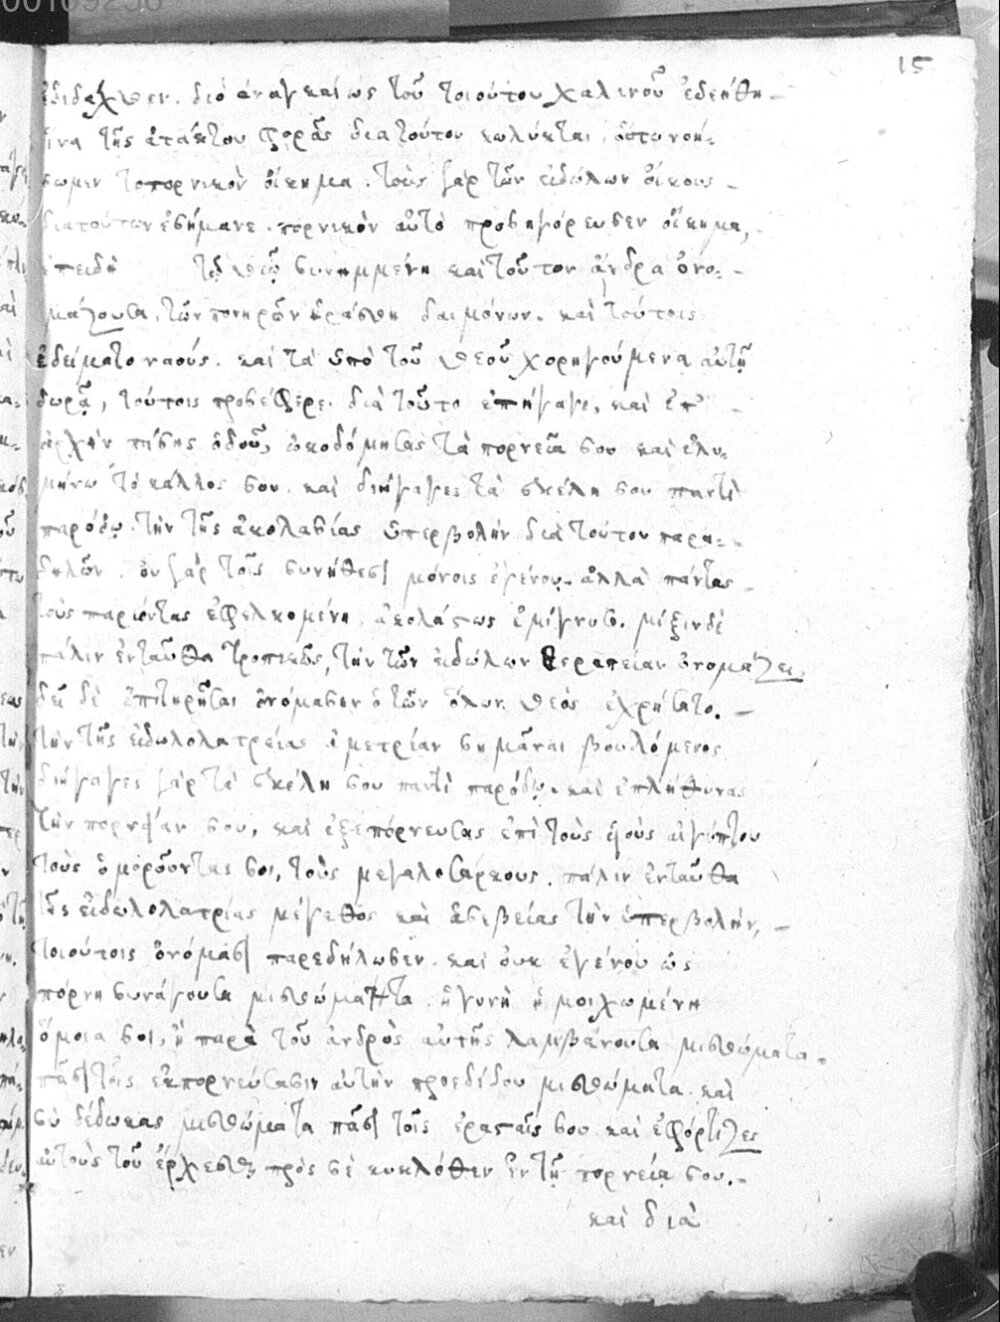 15
ἐδιδάχθεν. διὸ ἀναγκαίως τοῦ τοιούτου χαλινοῦ ἐδεήθη
ἵνα τῆς ἀτάκτου φορᾶς διὰ τούτου κωλύεται οὕτω νοή-
σωμεν τὸ πορνικὸν οἴκημα. τοὺς γὰρ τῶν εἰδώλων οἴκους
διὰ τούτων ἐσήμανε. πορνικὸν αὐτὸ προσηγόρευσεν οἴκημα,
ἐπειδὴ τῷ θεῷ συνημμένη καὶ τοῦτον ἄνδρα ὀνο-
μάζουσα, τῶν πονηρῶν ἠράσθη δαιμόνων. καὶ τούτοις
ἐδείματο ναούς. καὶ τὰ ὑπὸ τοῦ θεοῦ χορηγούμενα αὐτῇ
δῶρα, τούτοις προσέφερε. διὰ τοῦτο ἐπήγαγε, καὶ ἐπ'
ἀρχὴν πάσης ὁδοῦ, ὠκοδόμησας τὰ πορνεῖα σου καὶ ἐλυ-
μήνω τὸ κάλλος σου. καὶ διήγαγες τὰ σκέλη σου παντὶ
παρόδῳ. τὴν τῆς ἀκολασίας ὑπερβολὴν διὰ τούτου παρα-
δηλῶν. οὐ γὰρ τοῖς συνήθεσι μόνοις ἐγένου. ἀλλὰ πάντας
τοὺς παριόντας ἐφελκομένη ἀκολάστως ἐμίγνυσο. μίξιν δὲ
πάλιν ἐνταῦθα τροπικῶς, τὴν τῶν εἰδώλων θεραπείαν ὀνομάζει.
δεῖ δὲ ἐπιτηρῆσαι ὀνόμασιν ὁ τῶν ὅλων θεὸς ἐχρήσατο.
τὴν τῆς εἰδωλολατρείας ἀμετρίαν σημᾶναι βουλόμενος
διήγαγες γὰρ τὰ σκέλη σου παντὶ παρόδῳ. καὶ ἐπλήθυνας
τὴν πορνείαν σου, καὶ ἐξεπόρνευσας ἐπὶ τοὺς υἱοὺς αἰγύπτου
τοὺς ὁμοροῦντας σοι, τοὺς μεγαλοσάρκους. πάλιν ἐνταῦθα
τῆς εἰδωλολατρίας μέγεθος καὶ ἀσεβείας τὴν ὑπερβολὴν,
τοιούτοις ὀνόμασι παρεδήλωσεν. καὶ οὐκ ἐγένου ὡς
πόρνη συνάγουσα μισθώματα. ἡ γυνὴ ἡ μοιχωμένη
ὅμοια σοι, ἡ παρὰ τοῦ ἀνδρὸς αὐτῆς λαμβάνουσα μισθώματα.
πᾶσι τοῖς ἐκπορνεύσασιν αὐτὴν προεδίδου μισθώματα. καὶ
σὺ δέδωκας μισθώματα πᾶσι τοῖς ἐρασταῖς σου καὶ ἐφόρτιζες
αὐτοὺς τοῦ ἔρχεσθαι πρὸς σὲ κυκλόθεν ἐν τῇ πορνείᾳ σου.
καὶ διὰ